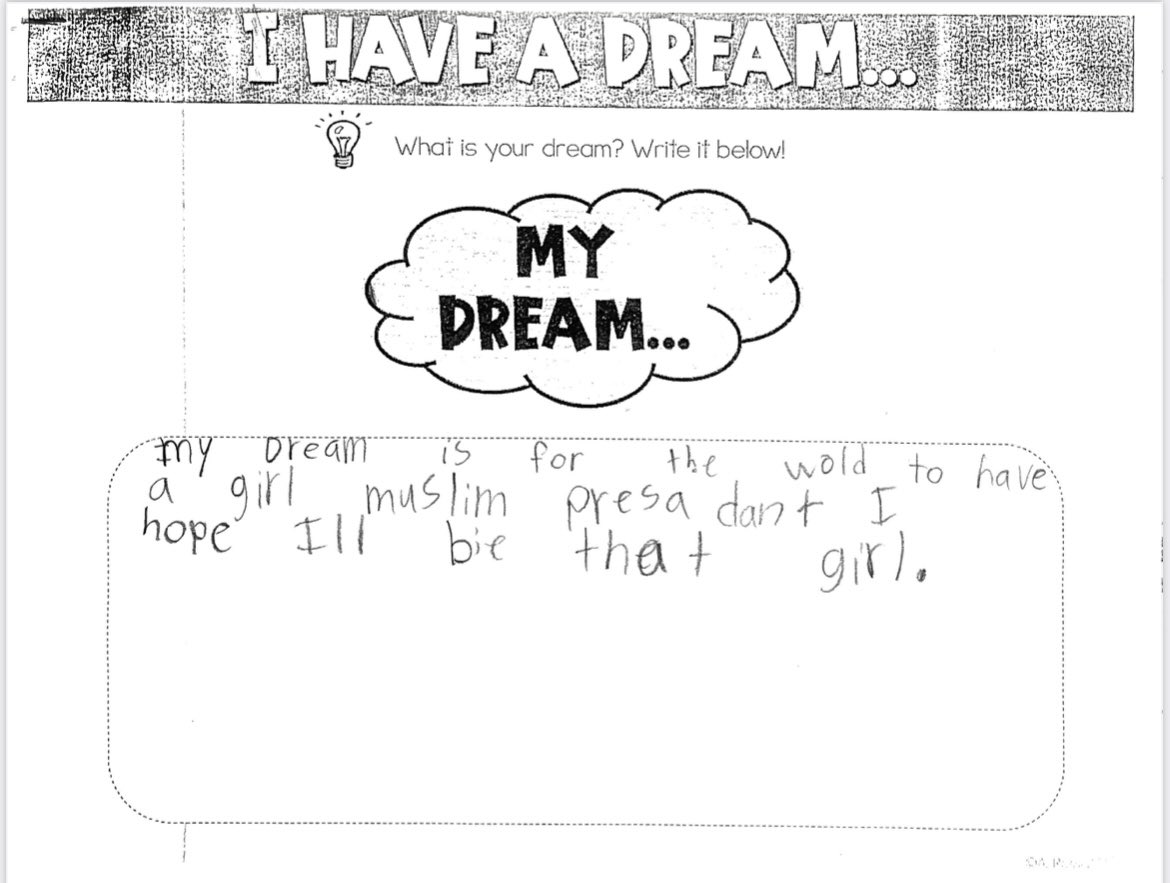 I HAVE A DREAM...
What is your dream? Write it below!
MY
DREAM...
my Dream is for the wold to have
a girl muslim presa dant I
hope Ill bie that girl.